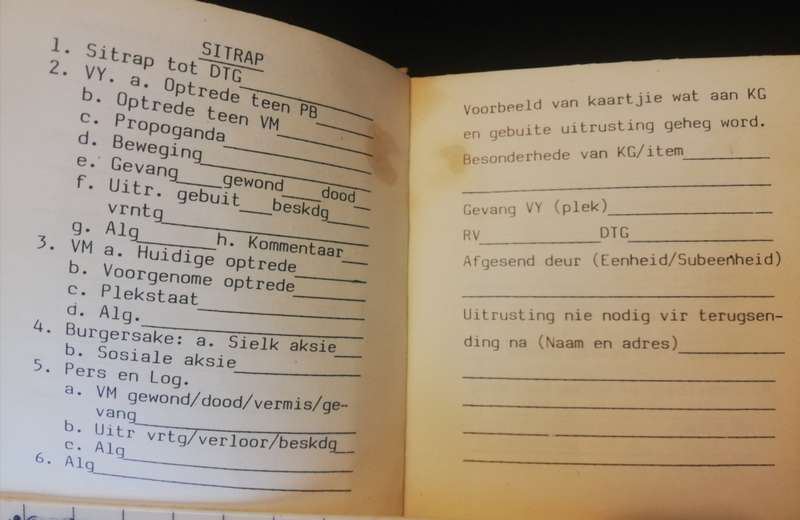 SITRAP
1. Sitrap tot DTG
2. VY. a. Optrede teen PB
b. Optrede teen VM
c. Propoganda
d. Beweging
e. Gevang____gewond____dood
f. Uitr. gebuit____beskdg
vrntg
g. Alg________h. Kommentaar
3. VM a. Huidige optrede
b. Voorgenome optrede
c. Plekstaat
d. Alg.
4. Burgersake: a. Sielk aksie
b. Sosiale aksie
5. Pers en Log.
a. VM gewond/dood/vermis/ge-
vang
b. Uitr vrtg/verloor/beskdg
c. Alg
6. Alg
Voorbeeld van kaartjie wat aan KG
en gebuite uitrusting geheg word.
Besonderhede van KG/item
Gevang VY (plek)
RV____________DTG
Afgesend deur (Eenheid/Subeenheid)
Uitrusting nie nodig vir terugsen-
ding na (Naam en adres)